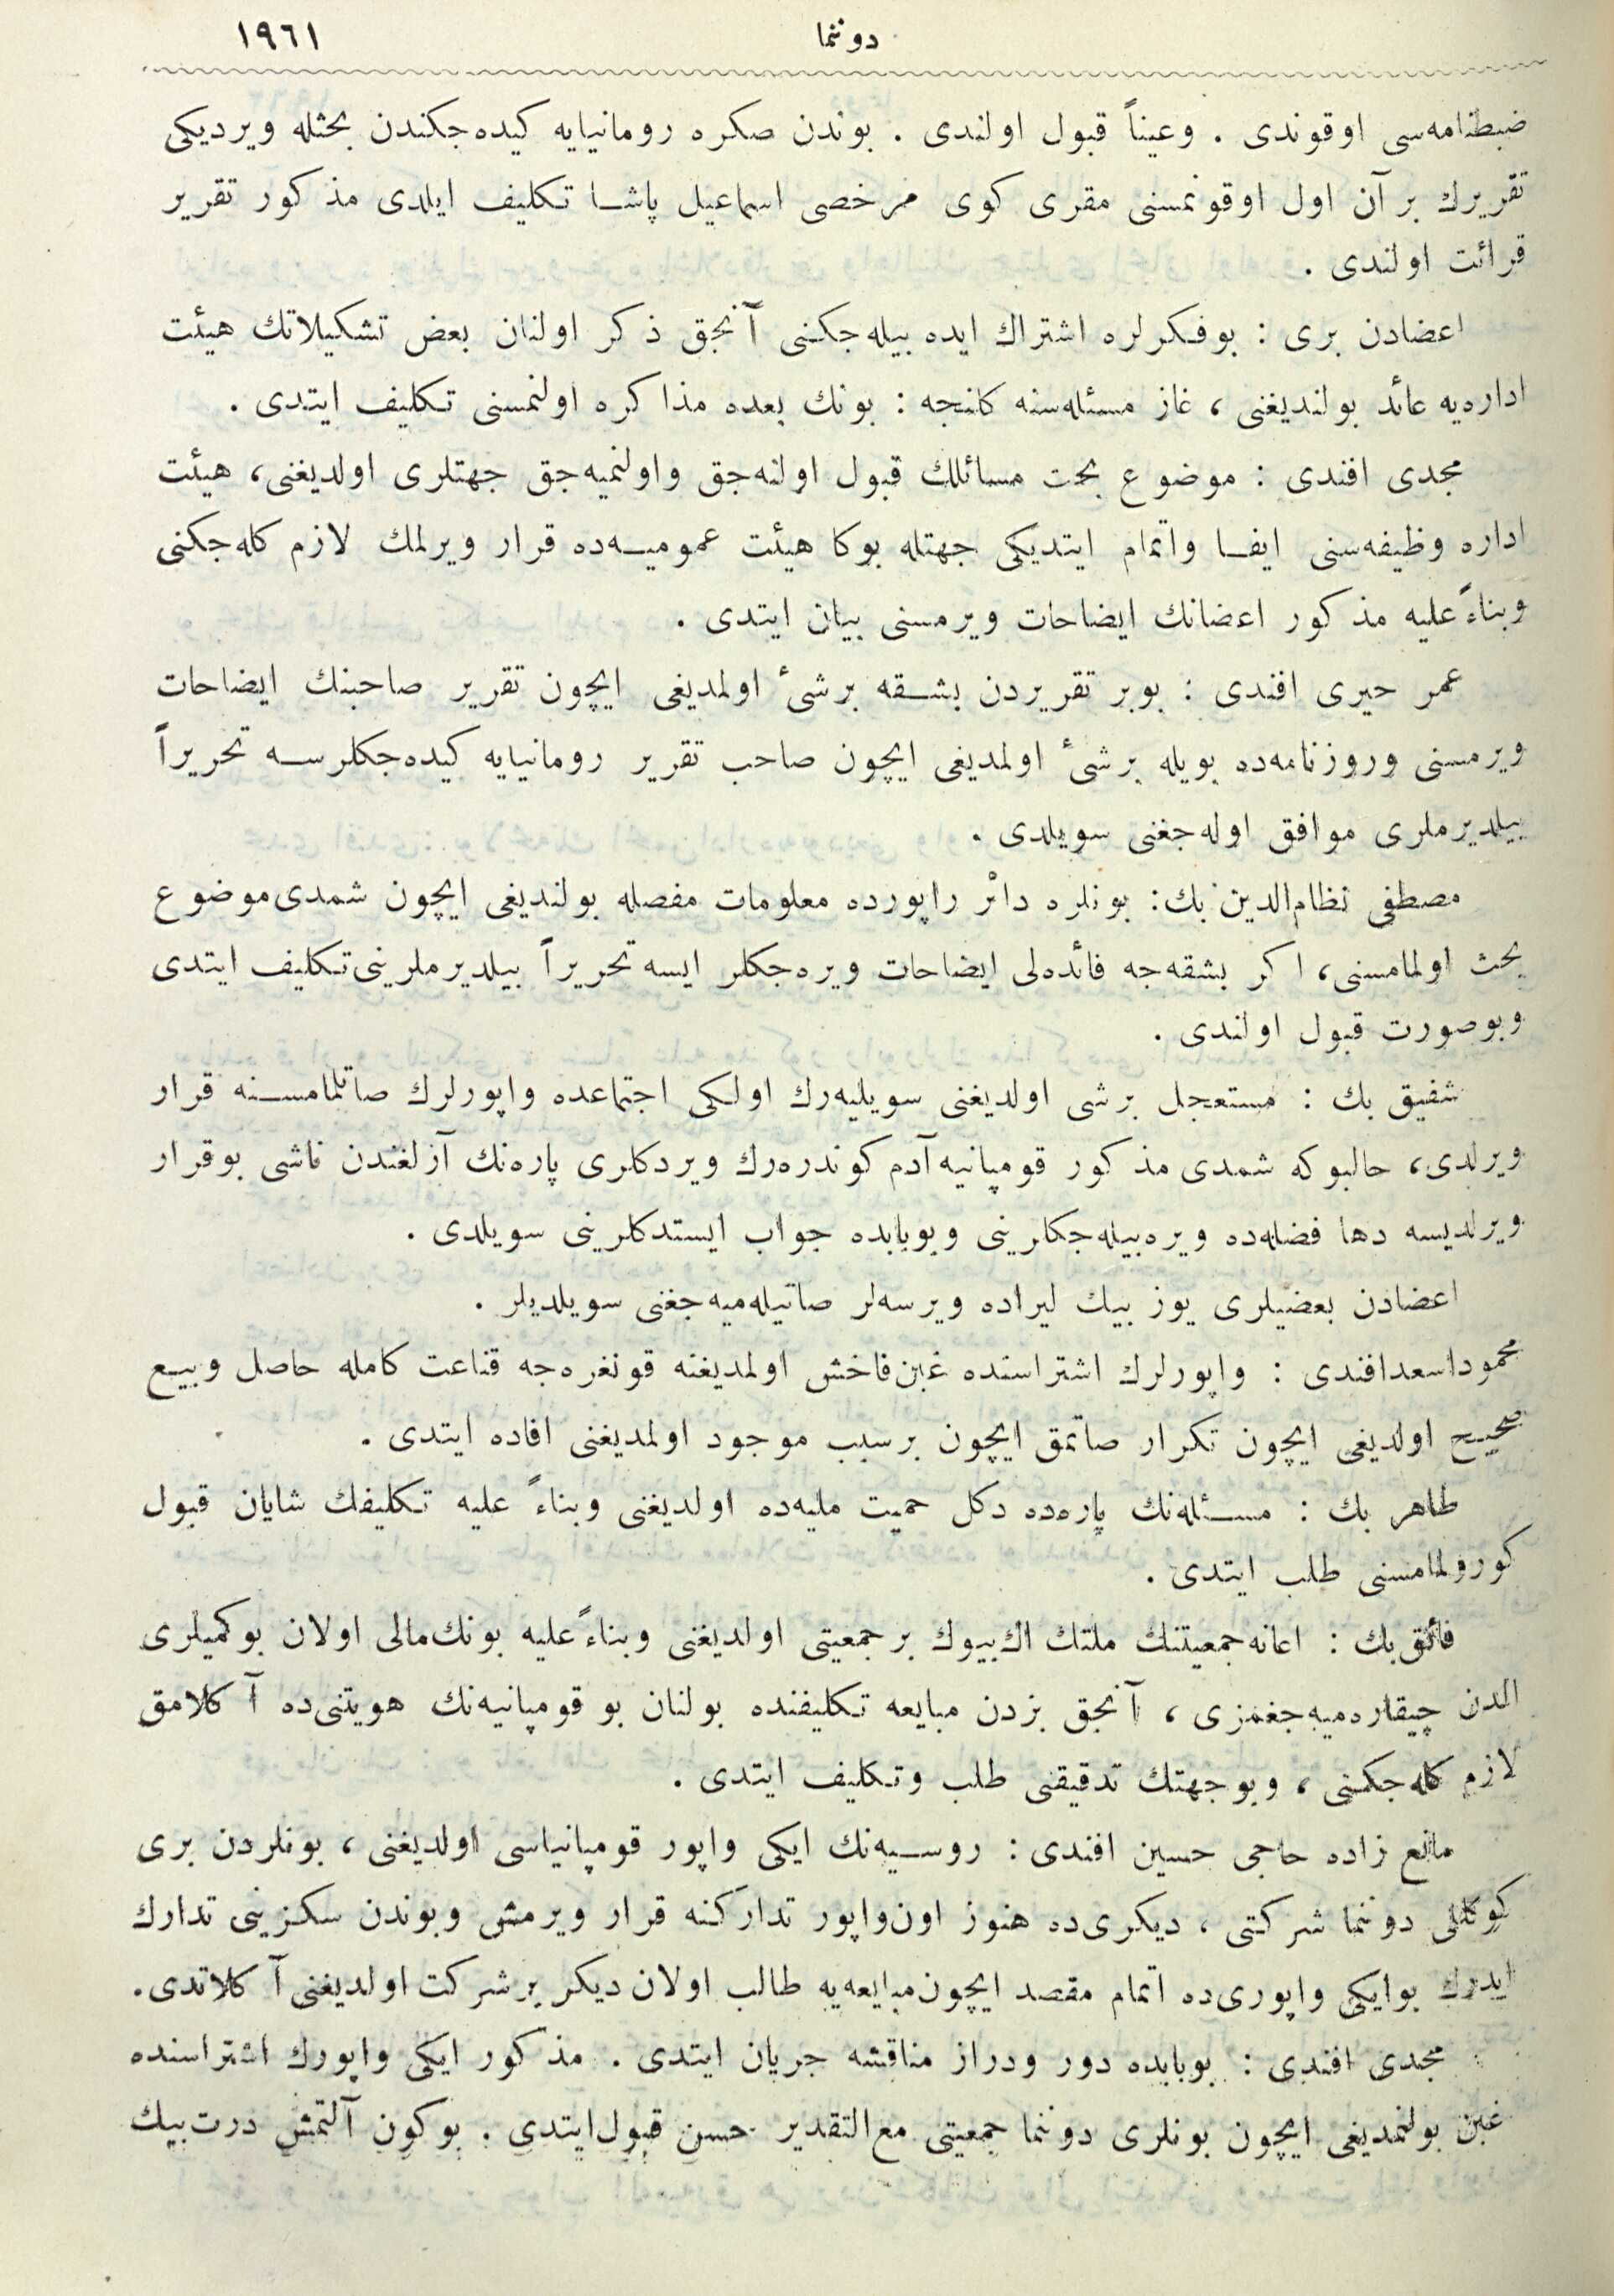 دوننما ١٩٦١
ضبطنامه‌سی اوقوندی . وعیناً قبول اولندی . بوندن صكره رومانیایه كیده‌جكندن بحثله ویردیكی
تقریرك بر آن اول اوقونمسنی مقری كوی مرخصی اسماعیل پاشا تكلیف ایلدی مذكور تقریر
قرائت اولندی .
اعضادن بری : بوفكرلره اشتراك ایده بیله‌جكنی آنجق ذكر اولنان بعض تشكیلاتك هیئت
اداره‌یه عائد بولندیغنی ، غاز مسئله‌سنه كلنجه : بونك بعده مذاكره اولنمسنی تكلیف ایتدی .
مجدی افندی : موضوع بحث مسائلك قبول اولنه‌جق واولنمیه‌جق جهتلری اولدیغنی، هیئت
اداره وظیفه‌سنی ایفا واتمام ایتدیكی جهتله بوكا هیئت عمومیه‌ده قرار ویرلمك لازم كله‌جكنی
وبناءً علیه مذكور اعضانك ایضاحات ویرمسنی بیان ایتدی .
عمر حیری افندی : بوبر تقریردن بشقه برشیٔ اولمدیغی ایچون تقریر صاحبنك ایضاحات
ویرمسنی وروزنامه‌ده بویله برشیٔ اولمدیغی ایچون صاحب تقریر رومانیایه كیده‌جكلرسه تحریراً
بیلدیرملری موافق اوله‌جغنی سویلدی .
مصطفی نظام‌الدین بك : بونلره دائر راپورده معلومات مفصله بولندیغی ایچون شمدی موضوع
بحث اولمامسنی، اكر بشقه‌جه فائده‌لی ایضاحات ویره‌جكلر ایسه تحریراً بیلدیرملرینی تكلیف ایتدی
وبوصورت قبول اولندی .
شفیق بك : مستعجل برشی اولدیغنی سویلیه‌رك اولكی اجتماعده واپورلرك صاتلمامسنه قرار
ویرلدی، حالبوكه شمدی مذكور قومپانیه آدم كوندره‌رك ویردكلری پاره‌نك آزلغندن ناشی بوقرار
ویرلدیسه دها فضله‌ده ویره‌بیله‌جكلرینی وبوبابده جواب ایستدكلرینی سویلدی .
اعضادن بعضیلری یوز بیك لیراده ویرسه‌لر صاتیله‌میه‌جغنی سویلدیلر .
محموداسعدافندی : واپورلرك اشتراسنده غبن‌فاخش اولمدیغنه قونغره‌جه قناعت كامله حاصل وبیع
صحیح اولدیغی ایچون تكرار صاتمق ایچون برسبب موجود اولمدیغنی افاده ایتدی .
طاهر بك : مسئله‌نك پاره‌ده دكل حمیت ملیه‌ده اولدیغنی وبناءً علیه تكلیفك شایان قبول
كورولمامسنی طلب ایتدی .
فائق بك : اعانه جمعیتنك ملتك اك بیوك برجمعیتی اولدیغنی وبناءً علیه بونك‌مالی اولان بوكمیلری
الدن چیقاره‌میه‌جغمزی ، آنجق بزدن مبایعه تكلیفنده بولنان بو قومپانیه‌نك هویتنی‌ده آكلامق
لازم كله‌جكنی ، وبوجهتك تدقیقنی طلب وتكلیف ایتدی .
مانع زاده حاجی حسین افندی : روسیه‌نك ایكی واپور قومپانیاسی اولدیغنی ، بونلردن بری
كوكللی دوننما شركتی ، دیكری‌ده هنوز اون‌واپور تداركنه قرار ویرمش وبوندن سكزینی تدارك
ایدرك بوایكی واپوری‌ده اتمام مقصد ایچون‌مبایعه‌یه طالب اولان دیكر برشركت اولدیغنی آكلاتدی .
مجدی افندی : بوبابده دور ودراز مناقشه جریان ایتدی . مذكور ایكی واپورك اشتراسنده
غبن بولنمدیغی ایچون بونلری دوننما جمعیتی مع‌التقدیر حسن قبول‌ایتدی . بوكون آلتمش درت‌بیك